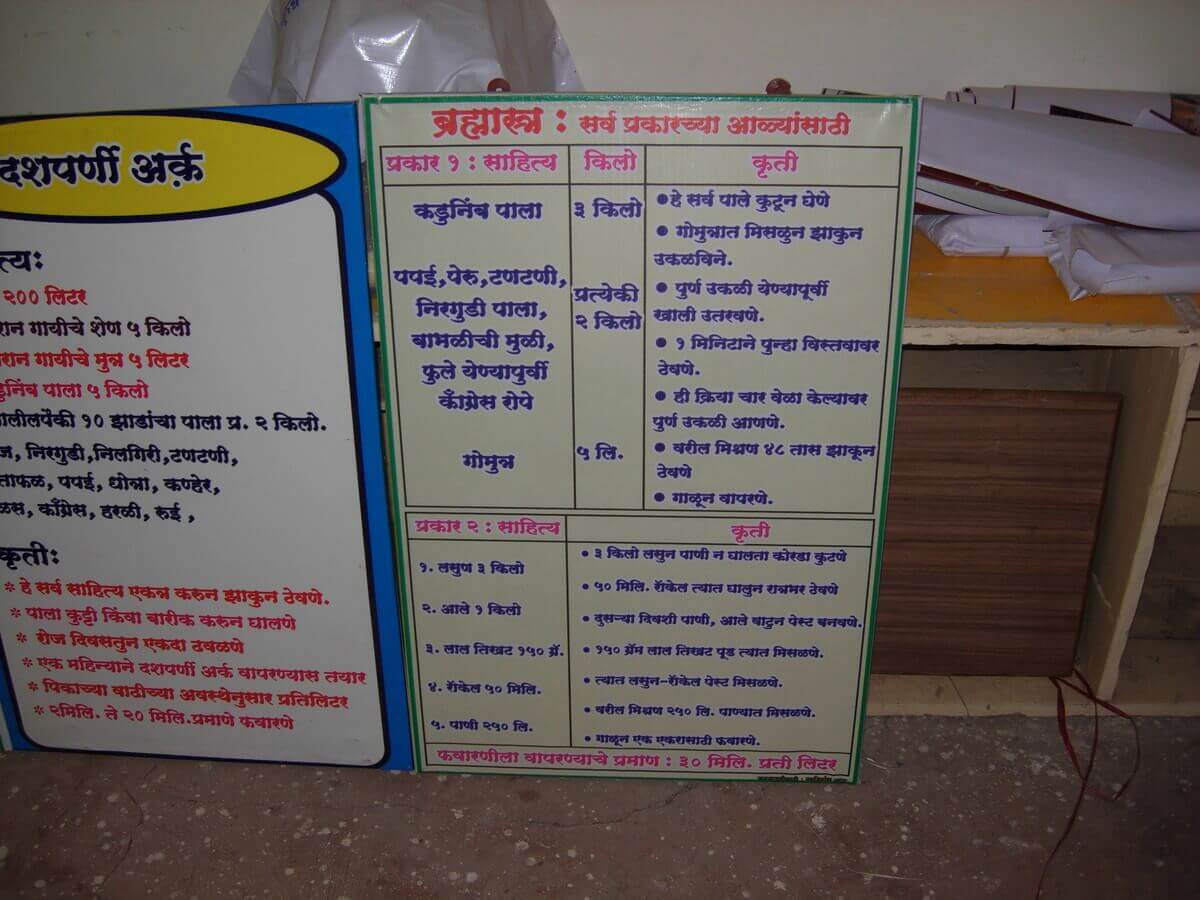 दशपर्णी अर्क
त्यः
२०० लिटर
रान गायीचे शेण ५ किलो
रान गायीचे मुत्र ५ लिटर
डुनिंब पाला ५ किलो
ालीलपैकी १० झाडांचा पाला प्र. २ किलो.
ज, निरगुडी,निलगिरी,टणटणी,
ताफळ, पपई, धोत्रा, कण्हेर,
ळस, काँग्रेस, हरळी, रुई ,
कृतीः
* हे सर्व साहित्य एकत्र करुन झाकुन ठेवणे.
* पाला कुट्टी किंवा बारीक करुन घालणे
* रोज दिवसतुन एकदा ढवळणे
* एक महिन्याने दशपर्णी अर्क वापरण्यास तयार
* पिकाच्या वाढीच्या अवस्थेनुसार प्रतिलिटर
* २मिलि. ते २० मिलि.प्रमाणे फवारणे
ब्रह्मास्त्र : सर्व प्रकारच्या आळ्यांसाठी
प्रकार १ : साहित्य किलो कृती
कडुनिंब पाला ३ किलो
पपई,पेरु,टणटणी, प्रत्येकी
निरगुडी पाला, २ किलो
बाभळीची मुळी,
फुले येण्यापुर्वी
काँग्रेस रोपे
गोमुत्र ५ लि.
• हे सर्व पाले कुटून घेणे
• गोमुत्रात मिसळुन झाकुन
उकळविने.
• पुर्ण उकळी येण्यापूर्वी
खाली उतरवणे.
• १ मिनिटाने पुन्हा विस्तवावर
ठेवणे.
• ही क्रिया चार वेळा केल्यावर
पुर्ण उकळी आणणे.
• वरील मिश्रण ४८ तास झाकून
ठेवणे
• गाळून वापरणे.
प्रकार २ : साहित्य कृती
१. लसुण ३ किलो
२. आले १ किलो
३. लाल तिखट १५० ग्रॅ.
४. रॉकेल ५० मिलि.
५. पाणी २५० लि.
• ३ किलो लसुन पाणी न घालता कोरडा कुटणे
• ५० मिलि. रॉकेल त्यात घालुन रात्रभर ठेवणे
• दुसऱ्या दिवशी पाणी, आले वाटुन पेस्ट बनवणे.
• १५० ग्रॅम लाल तिखट पूड त्यात मिसळणे.
• त्यात लसुन-रॉकेल पेस्ट मिसळणे.
• वरील मिश्रण २५० लि. पाण्यात मिसळणे.
• गाळून एक एकरासाठी फवारणे.
फवारणीला वापरण्याचे प्रमाण : ३० मिलि. प्रती लिटर